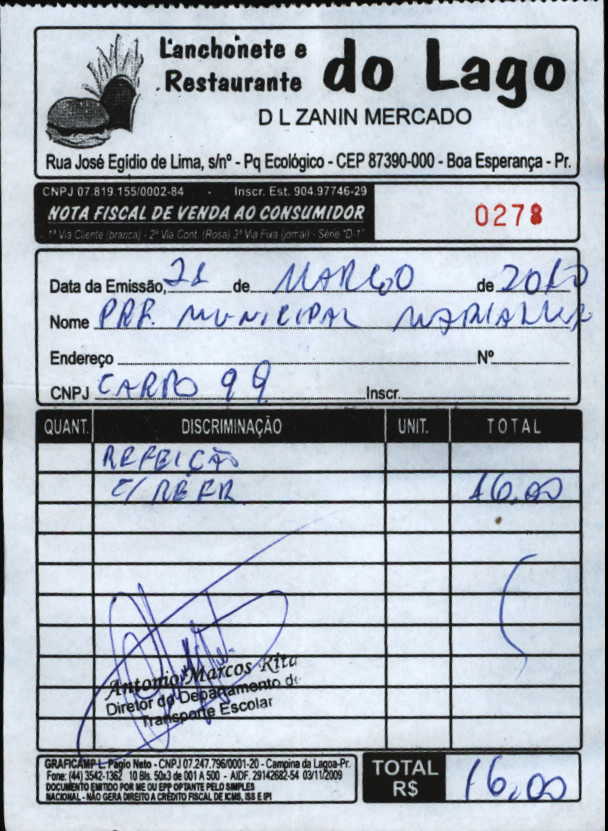 Lanchonete e
Restaurante do Lago
D L ZANIN MERCADO
Rua José Egídio de Lima, s/nº - Pq Ecológico - CEP 87390-000 - Boa Esperança - Pr.
CNPJ 07.819.155/0002-84 - Inscr. Est. 904.97746-29
NOTA FISCAL DE VENDA AO CONSUMIDOR
0278
1ª Via Cliente (branca) - 2ª Via Cont. (Rosa) 3ª Via Fixa (jornal) - Série "D-1"
Data da Emissão, 21 de MARÇO de 2010
Nome PRF. MUNICIPAL MARIALUZ
Endereço Nº
CNPJ CARRO 99 Inscr.
QUANT. DISCRIMINAÇÃO UNIT. TOTAL
REFEIÇÃO
C/ REFR 16,00
Antonio Marcos Rita
Diretor do Departamento de
Transporte Escolar
GRAFICAMP - L. Pagio Neto - CNPJ 07.247.796/0001-20 - Campina da Lagoa-Pr.
Fone: (44) 3542-1362 10 Bls. 50x3 de 001 A 500 - AIDF. 29142682-54 03/11/2009
DOCUMENTO EMITIDO POR ME OU EPP OPTANTE PELO SIMPLES
NACIONAL - NÃO GERA DIREITO A CRÉDITO FISCAL DE ICMS, ISS E IPI
TOTAL
R$ 16,00